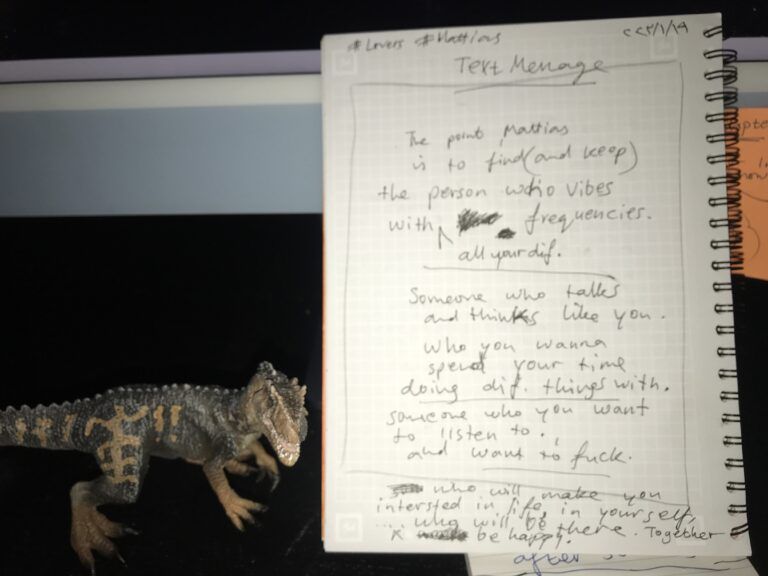 #Lovers #Mattias
5/1/19
Text Message
The point Mattias
is to find (and keep)
the person who vibes
with frequencies.
all your dif.
Someone who talks
and thinks like you.
who you wanna
spend your time
doing dif. things with.
someone who you want
to listen to.
and want to fuck.
who will make you
intersted in life, in yourself,
.... who will be there. Together
x be happy.
after